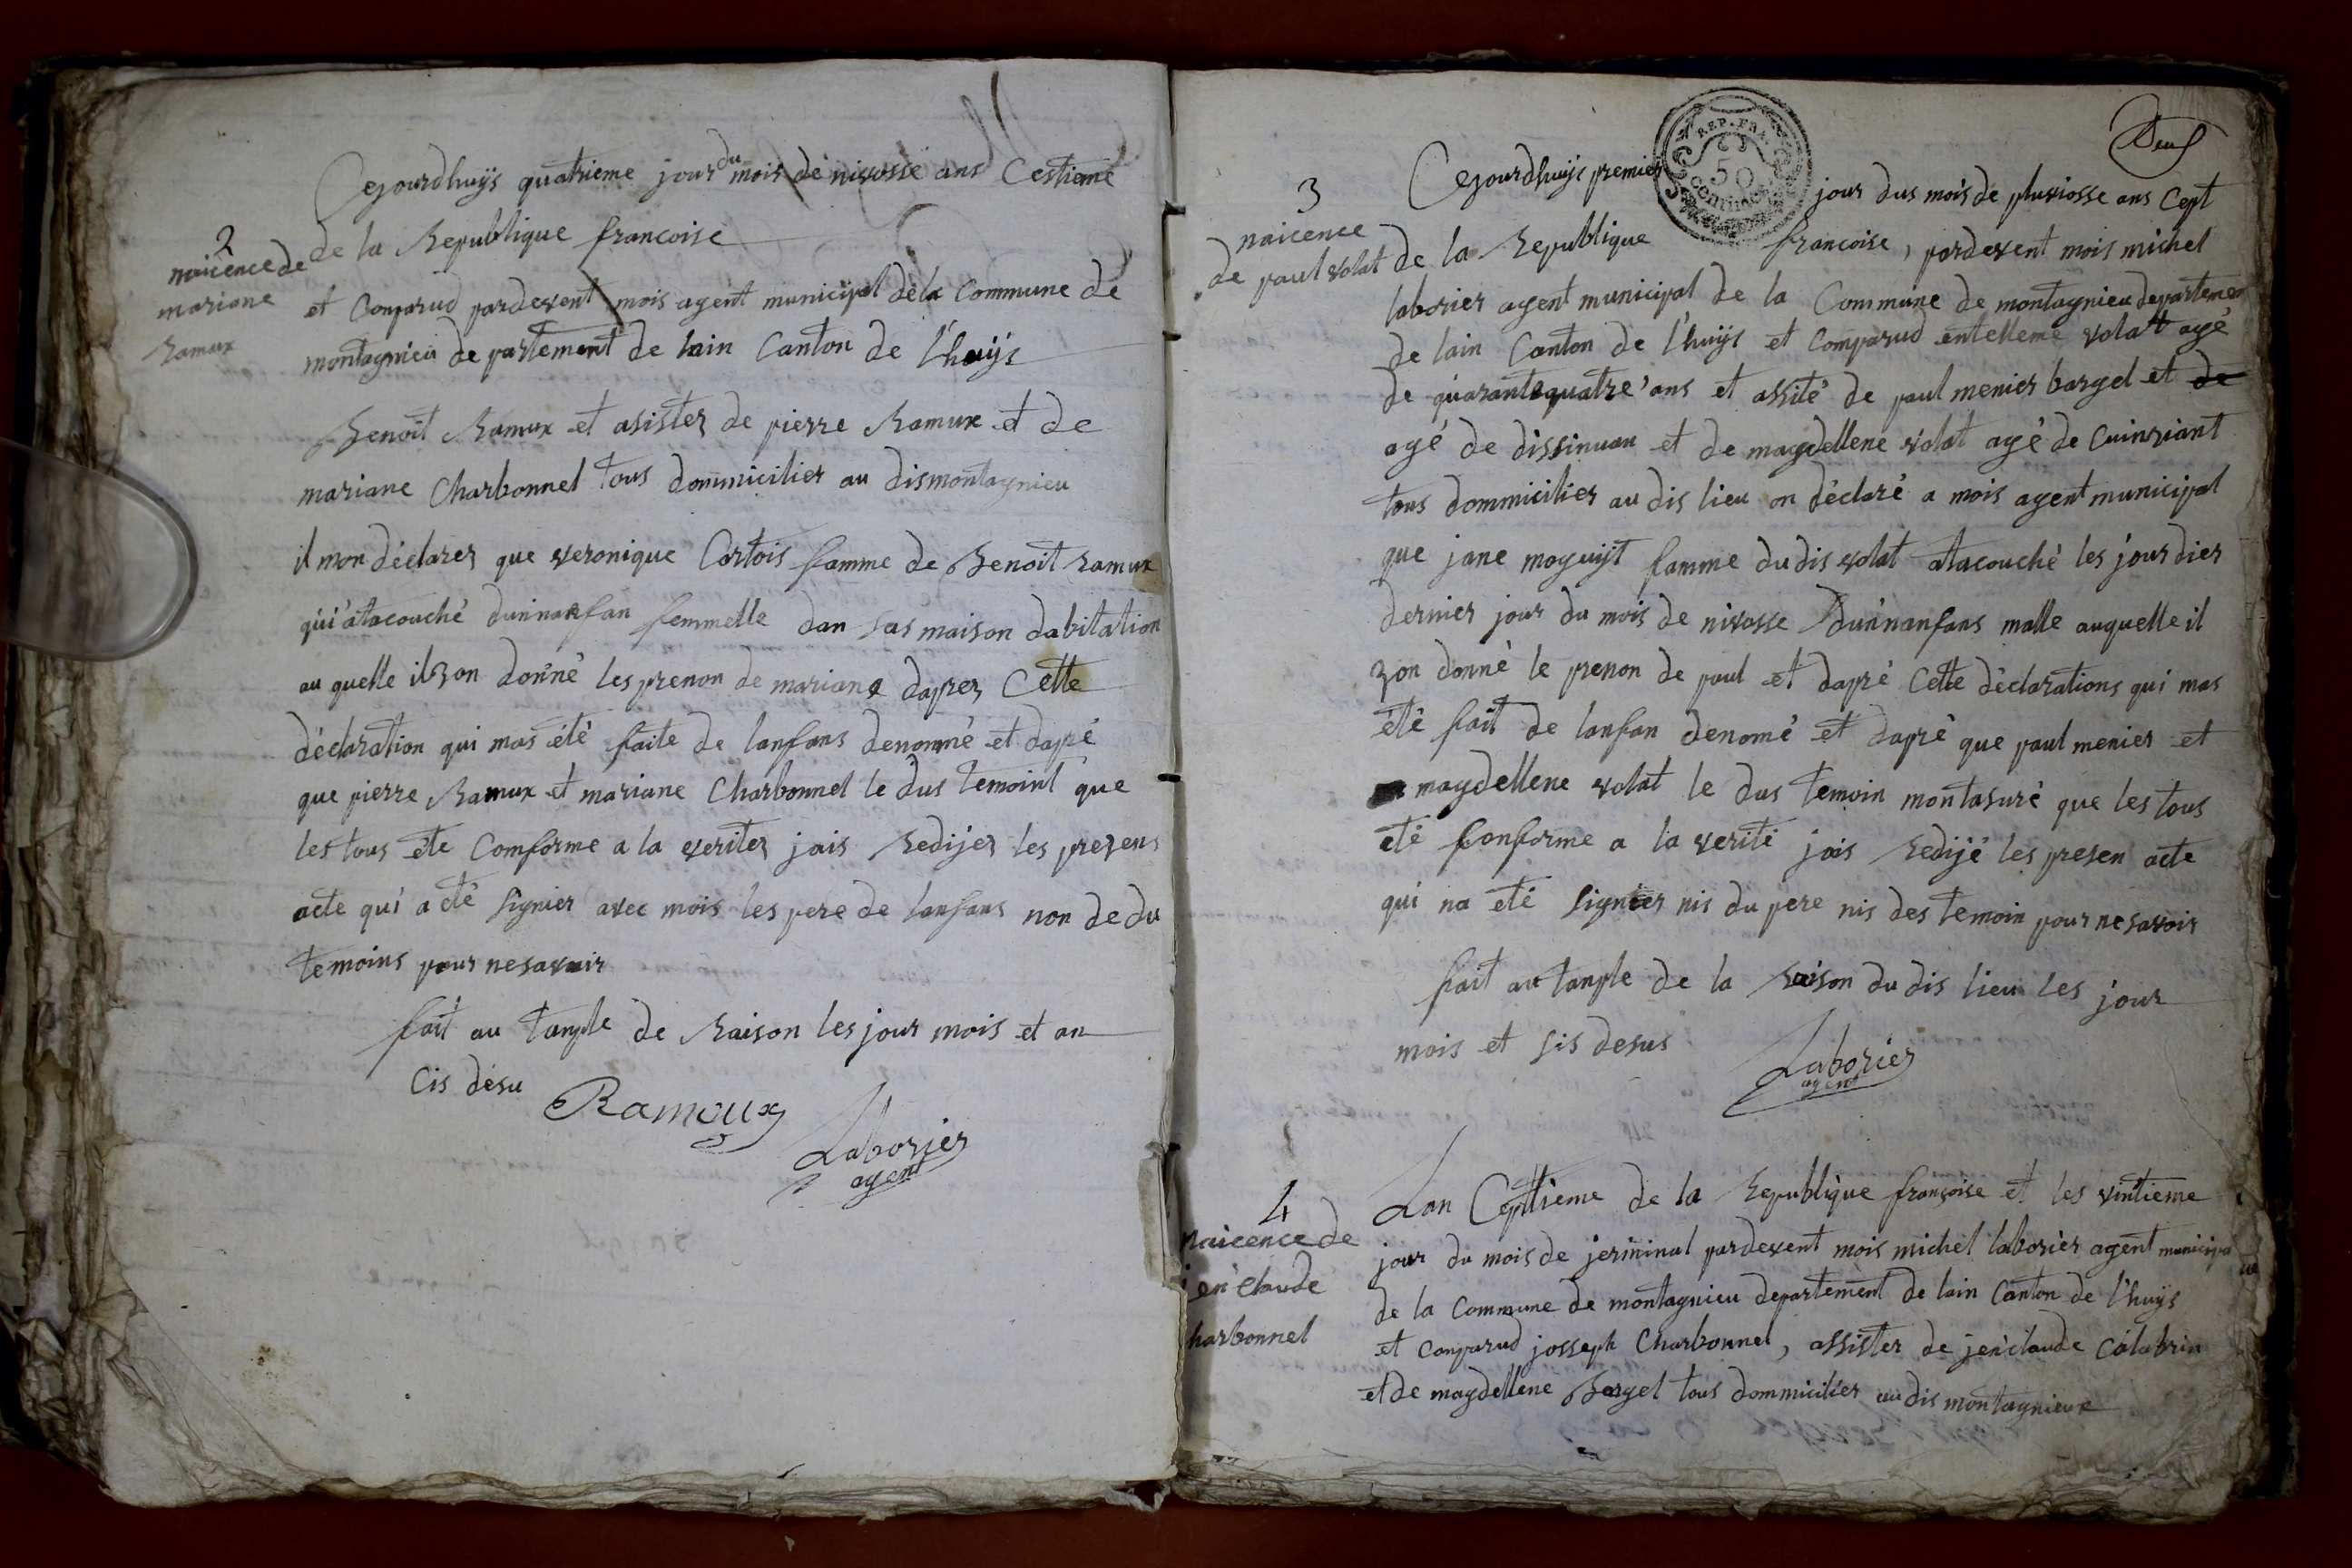 Cejourdhuÿs quatrieme jour du mois de nivosse ans Cestieme
de la Republique francoise
2
naicence de
mariane
Ramux
et Comparud pardevent mois agent municipal dela Commune de
montagnieu departement de lain Canton de l'huÿs
Benoit Ramux et asister de pierre Ramux et de
mariane Charbonnel tous dommicilier au dismontagnieu
il mon déclarer que veronique Cortois famme de Benoit Ramux
qui atacouché dunnanfan femmelle dan sas maison dabitation
au quelle ilzon donné les prenon de mariane daprez Cette
déclaration qui mas été faite de lanfans denommé et dapré
que pierre Ramux et mariane Charbonnel le dus temoint que
les tous éte Comforme a la veriter jais Redijer les prezens
acte qui a eté signier avec mois les pere de lanfans non de du
temoins pour nesavoir
fait au tanple de Raison les jour mois et an
Cis désu
Ramoux
Laborier
agent
Deuf
REP. FRA
50
CENTIMES
3
naicence
de paul volat
Cejourdhuÿs premier jour dus mois de pluviosse ans Cept
de la Republique francoise, pardevent mois michel
laborier agent municipal de la Commune de montagnieu departemen
de lain Canton de l'huÿs et Comparud entelleme volat agé
de quarantequatre ans et assité de paul menier bargel et de
agé de dissinuan et de magdellene volat agé de Cuinziant
tous dommicilier au dis lieu on déclaré a mois agent municipal
que jane moguiÿt famme du dis volat atacouché les jourdier
dernier jour du mois de nivosse dunnanfans malle auquelle il
zon donné le prenon de paul et dapré Cette déclarations qui mas
été fait de lanfan denomé et dapré que paul menier et
magdellene volat le dus temoin montasuré que les tous
eté Conforme a la verité jais Redijé les presen acte
qui na eté signier nis du pere nis des temoin pour ne savoir
fait au tanple de la Raison du dis lieu les jour
mois et sis desus
Laborier
agent
4
naicence de
jen claude
harbonnel
Lan Cepttieme de la Republique françoise et les vintieme
jour du mois de jerminal pardevent mois michel laborier agent municipa
de la Commune de montagnieu departement de lain Canton de l'huÿs
et Comparud josseph Charbonnel, assister de jen claude Calabrin
et de magdellene Bargel tous dommicilier au dis montagnieux